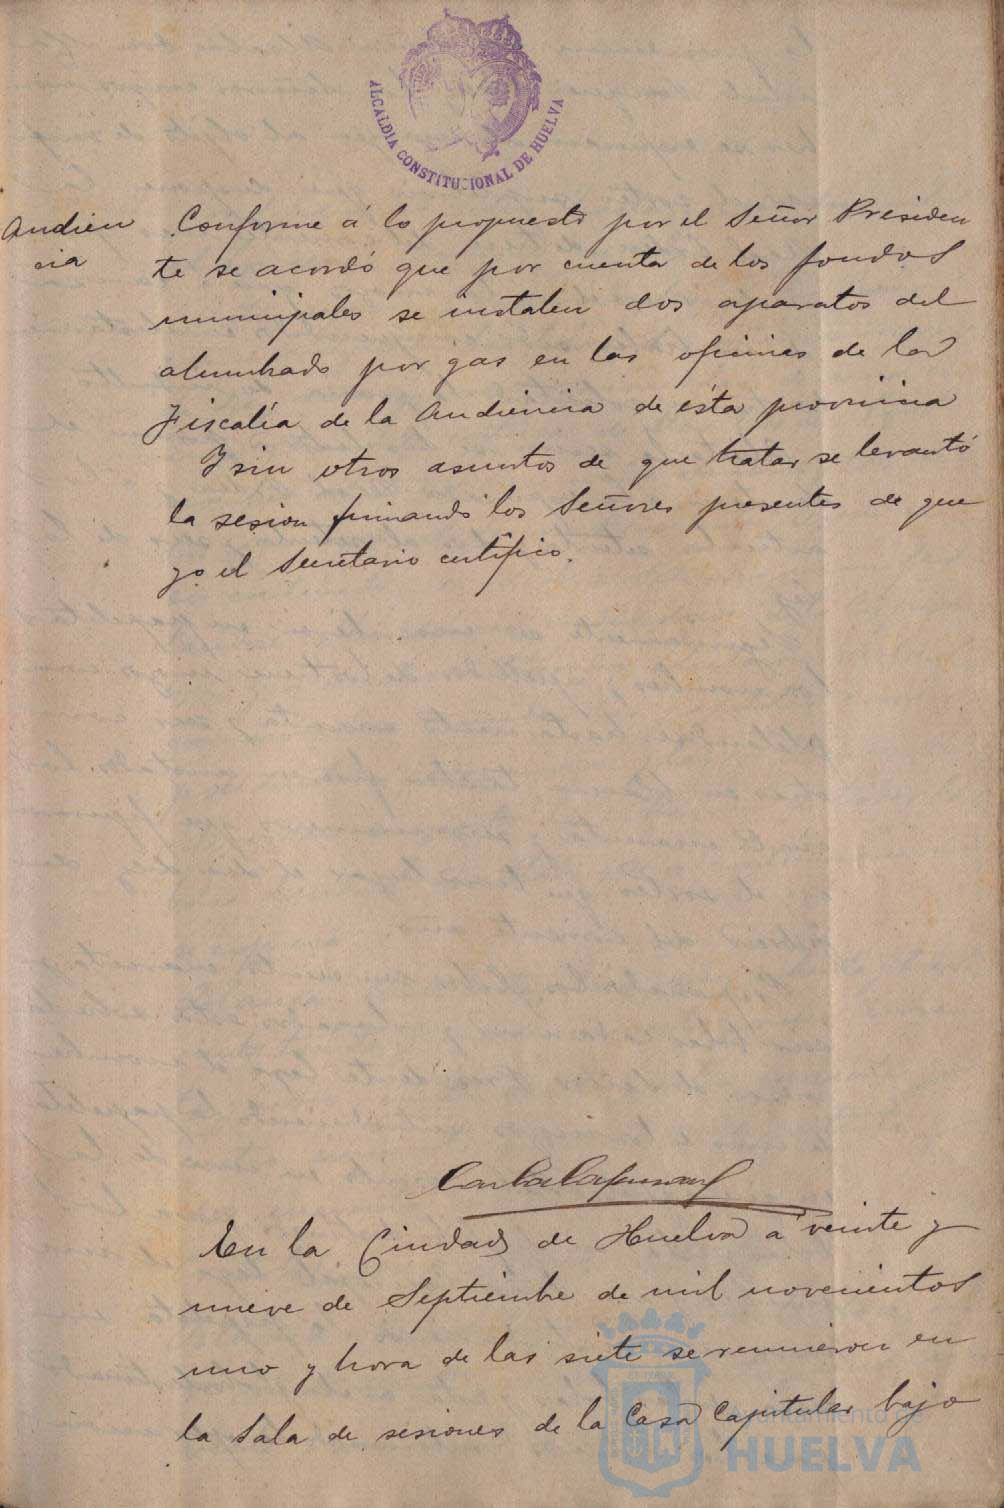 ALCALDIA CONSTITUCIONAL DE HUELVA
Audien
cia
Conforme á lo propuesto por el Señor Presiden
te se acordó que por cuenta de los fondos
municipales se instalen dos aparatos del
alumbrado por gas en las oficinas de la
Fiscalía de la Audiencia de ésta provincia
Y sin otros asuntos de que tratar se levantó
la sesion firmando los Señores presentes de que
yo el Secretario certifico.
En la Ciudad de Huelva a veinte y
nueve de Septiembre de mil novecientos
uno y hora de las siete se reunieron en
la Sala de sesiones de la Casa Capitular bajo
Ayuntamiento de
HUELVA